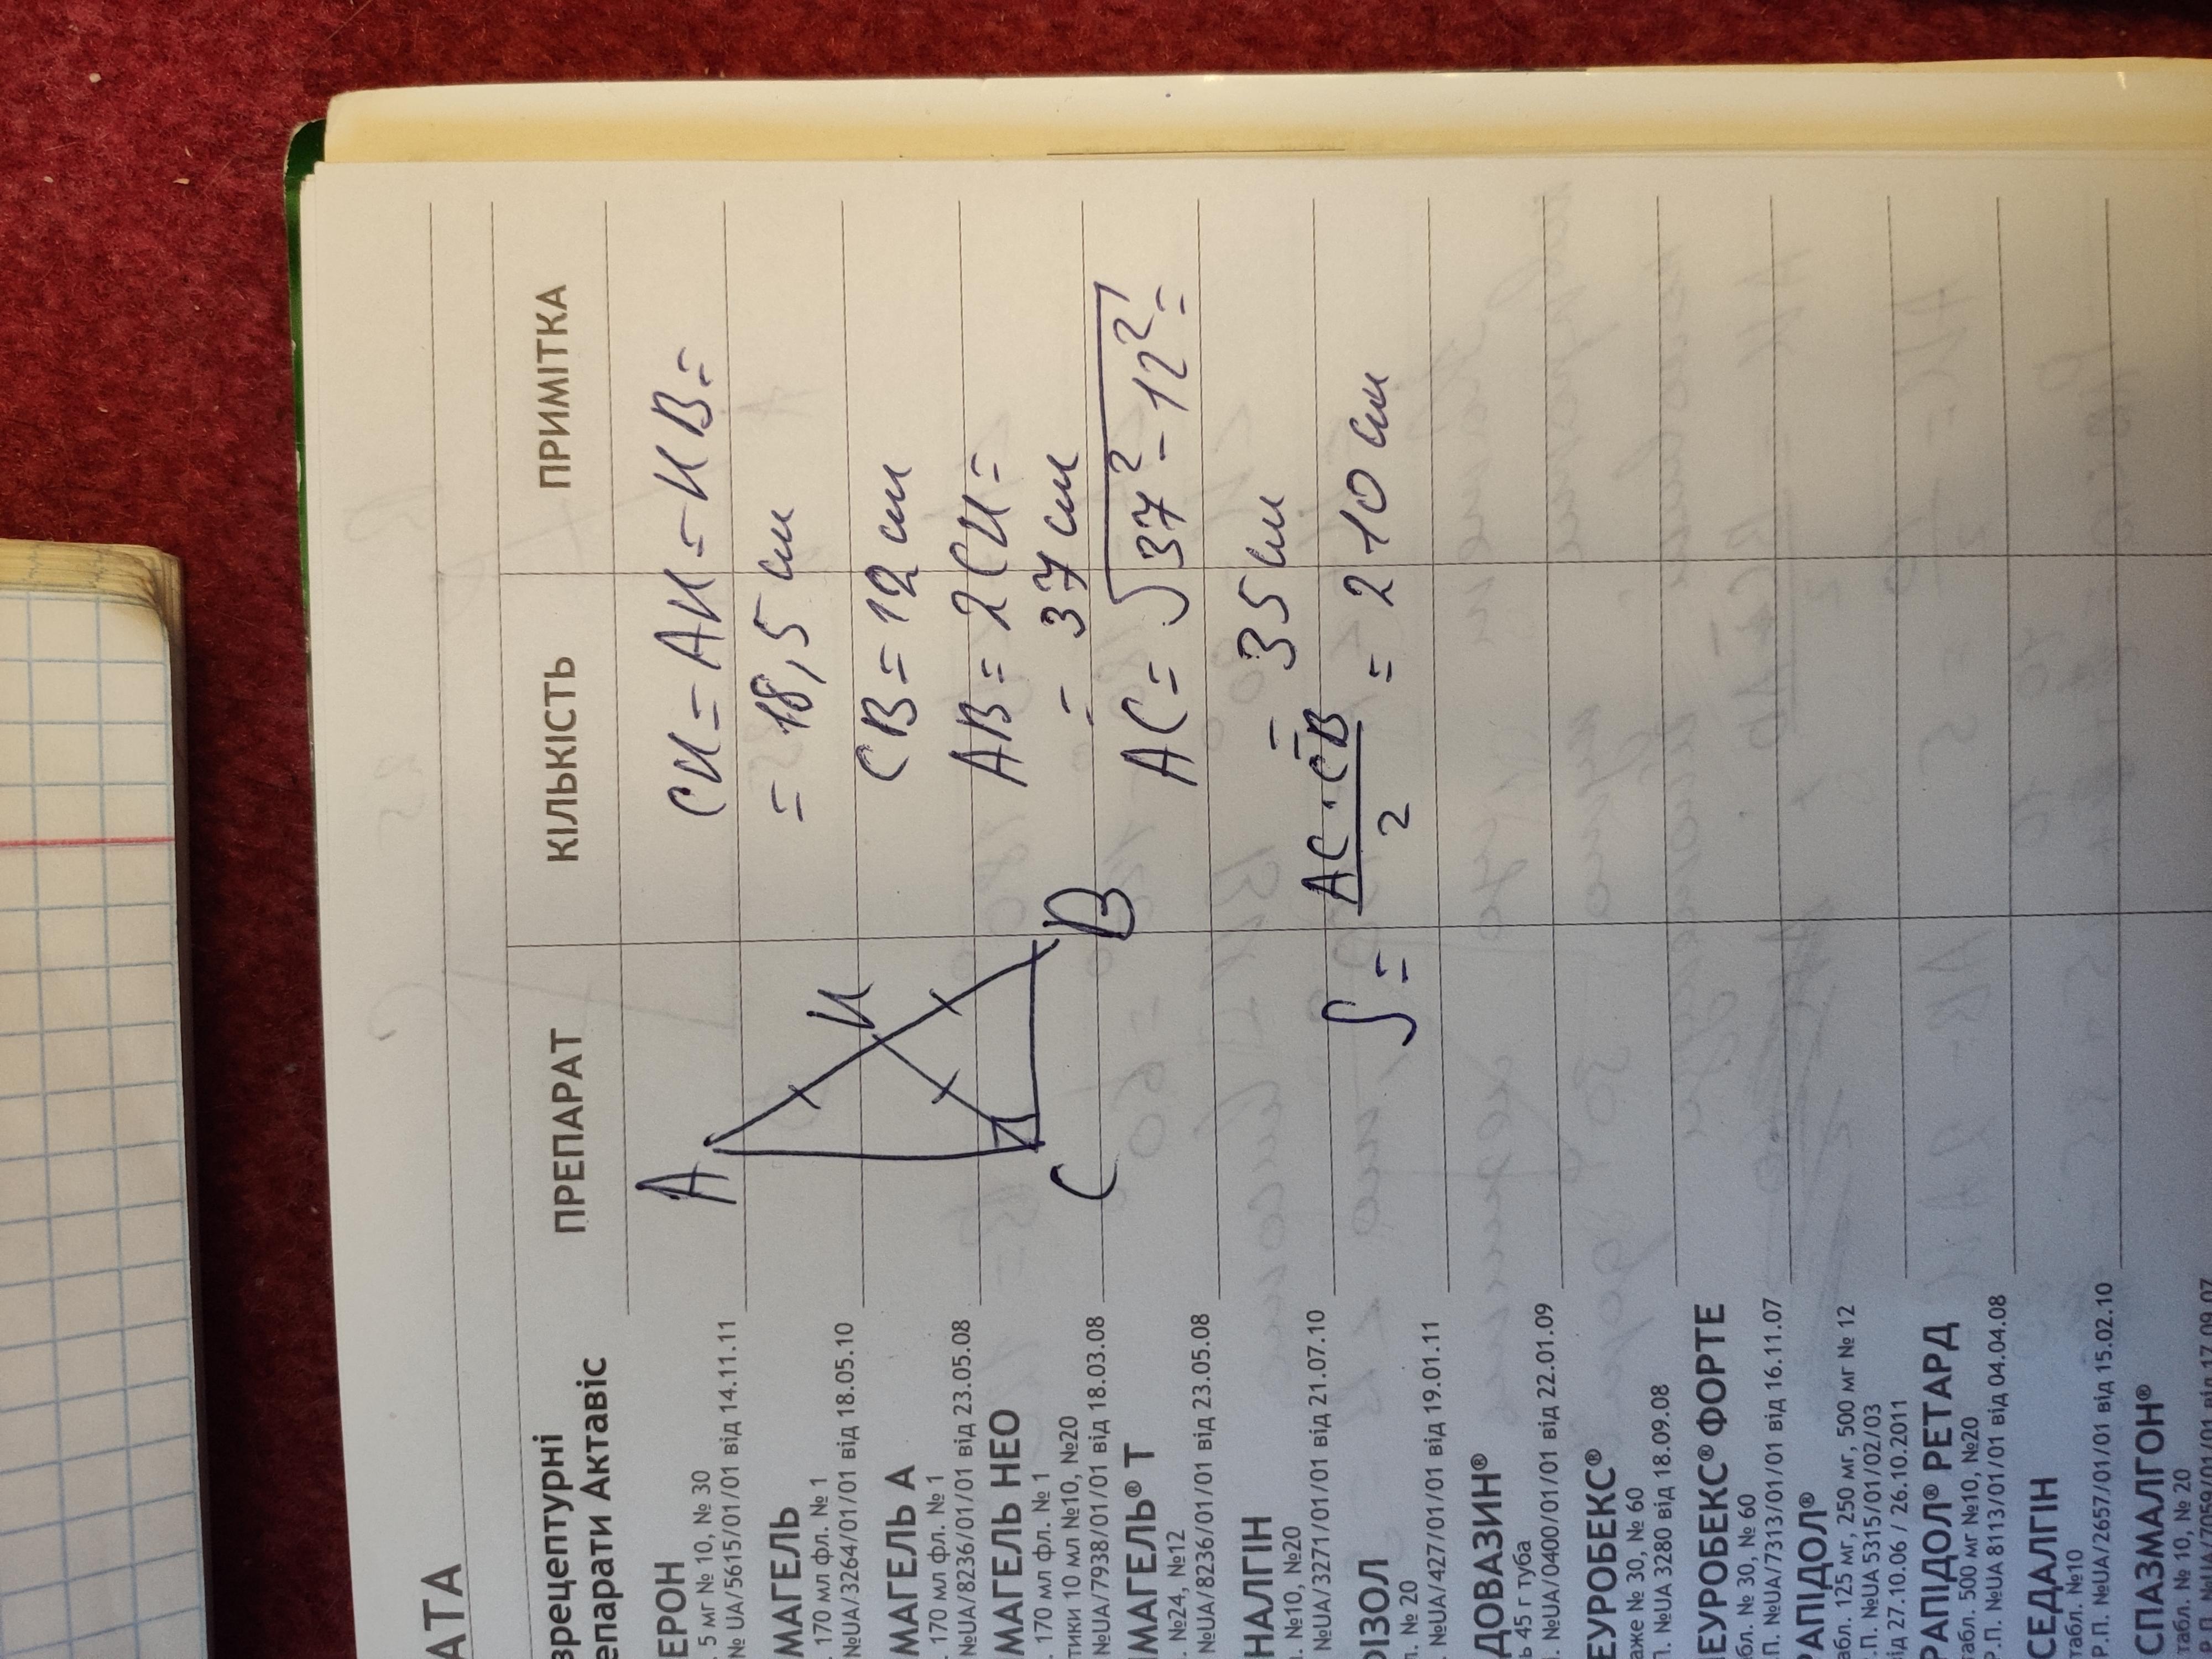 АТА
зрецептурні
епарати Актавіс
ПРЕПАРАТ
КІЛЬКІСТЬ
ПРИМІТКА
ЕРОН
. 5 мг № 10, № 30
№ UA/5615/01/01 від 14.11.11
МАГЕЛЬ
. 170 мл фл. № 1
№UA/3264/01/01 від 18.05.10
МАГЕЛЬ А
. 170 мл фл. № 1
№UA/8236/01/01 від 23.05.08
МАГЕЛЬ НЕО
. 170 мл фл. № 1
тики 10 мл №10, №20
№UA/7938/01/01 від 18.03.08
МАГЕЛЬ® Т
. №24, №12
№UA/8236/01/01 від 23.05.08
НАЛГІН
. №10, №20
№UA/3271/01/01 від 21.07.10
ІЗОЛ
. № 20
№UA/427/01/01 від 19.01.11
ДОВАЗИН®
ь 45 г туба
. №UA/0400/01/01 від 22.01.09
ЕУРОБЕКС®
аже № 30, № 60
. №UA 3280 від 18.09.08
ЕУРОБЕКС® ФОРТЕ
абл. № 30, № 60
. №UA/7313/01/01 від 16.11.07
АПІДОЛ®
абл. 125 мг, 250 мг, 500 мг № 12
.П. №UA 5315/01/02/03
ід 27.10.06 / 26.10.2011
АПІДОЛ® РЕТАРД
абл. 500 мг №10, №20
.Р.П. №UA 8113/01/01 від 04.04.08
СЕДАЛГІН
табл. №10
Р.П. №UA/2657/01/01 від 15.02.10
СПАЗМАЛГОН®
табл. № 10, № 20
A
К
C
B
CК = AК = КB =
= 18,5 см
CB = 12 см
AB = 2CК =
= 37 см
AC = √37² - 12² =
= 35 см
S = AC · CB / 2 = 210 см